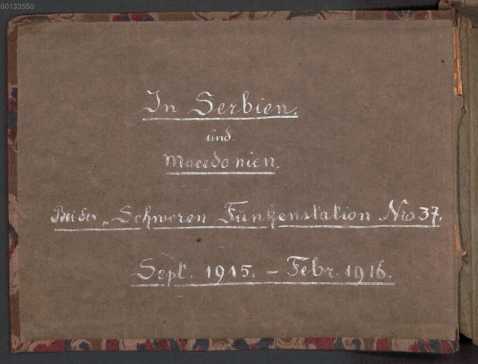 60133550
In Serbien.
und
Macedonien.
Bei der „Schweren Funkenstation Nro 37.
Sept. 1915. – Febr. 1916.